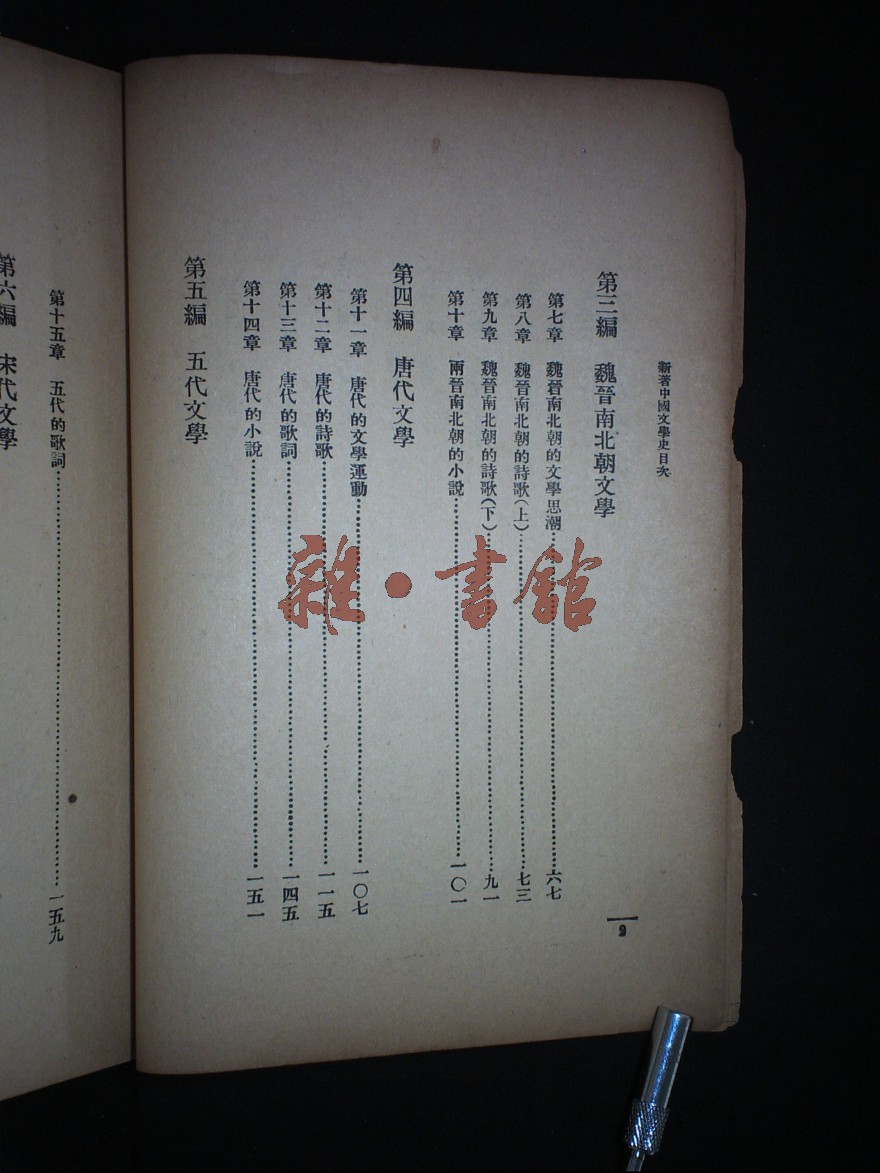 新著中國文學史目次
第三編　魏晉南北朝文學
第七章　魏晉南北朝的文學思潮……六七
第八章　魏晉南北朝的詩歌(上)……七三
第九章　魏晉南北朝的詩歌(下)……九一
第十章　兩晉南北朝的小說……一〇一
第四編　唐代文學
第十一章　唐代的文學運動……一〇七
第十二章　唐代的詩歌……一一五
第十三章　唐代的歌詞……一四五
第十四章　唐代的小說……一五一
第五編　五代文學
2
第十五章　五代的歌詞……一五九
第六編　宋代文學
雜·書館